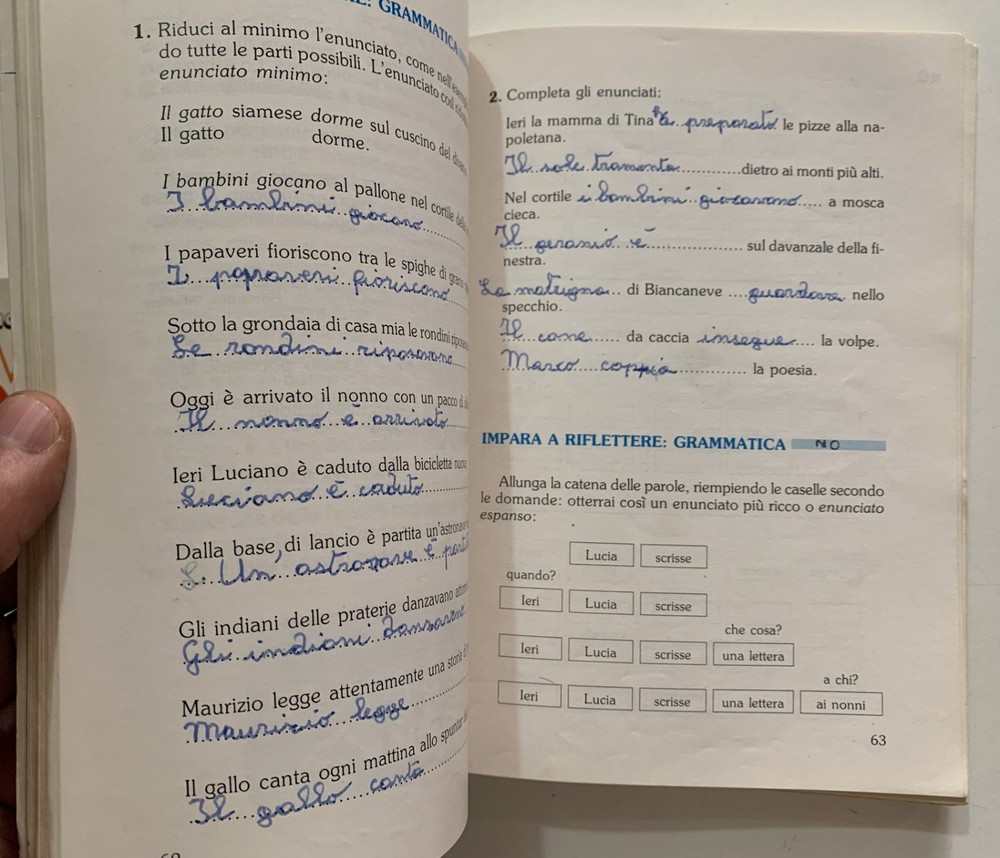 GRAMMATICA
1. Riduci al minimo l'enunciato, come
do tutte le parti possibili. L'enunciato così
enunciato minimo:
Il gatto siamese dorme sul cuscino del
Il gatto dorme.
I bambini giocano al pallone nel cortile
I bambini giocano
I papaveri fioriscono tra le spighe di
I papaveri fioriscono
Sotto la grondaia di casa mia le rondini
Le rondini riposavano
Oggi è arrivato il nonno con un pacco di
Il nonno è arrivato
Ieri Luciano è caduto dalla bicicletta
Luciano è caduto
Dalla base di lancio è partita un'astronave
Un astronave è
Gli indiani delle praterie danzavano
Gli indiani
Maurizio legge attentamente una storia
Maurizio legge
Il gallo canta ogni mattina allo spuntar
Il gallo canta
2. Completa gli enunciati:
Ieri la mamma di Tina ha preparato le pizze alla na-
poletana.
Il sole tramonta dietro ai monti più alti.
Nel cortile i bambini giocavano a mosca
cieca.
Il geranio è sul davanzale della fi-
nestra.
La matrigna di Biancaneve guardava nello
specchio.
Il cane da caccia insegue la volpe.
Marco coppia la poesia.
IMPARA A RIFLETTERE: GRAMMATICA NO
Allunga la catena delle parole, riempiendo le caselle secondo
le domande: otterrai così un enunciato più ricco o enunciato
espanso:
Lucia scrisse
quando?
Ieri Lucia scrisse
che cosa?
Ieri Lucia scrisse una lettera
a chi?
Ieri Lucia scrisse una lettera ai nonni
63